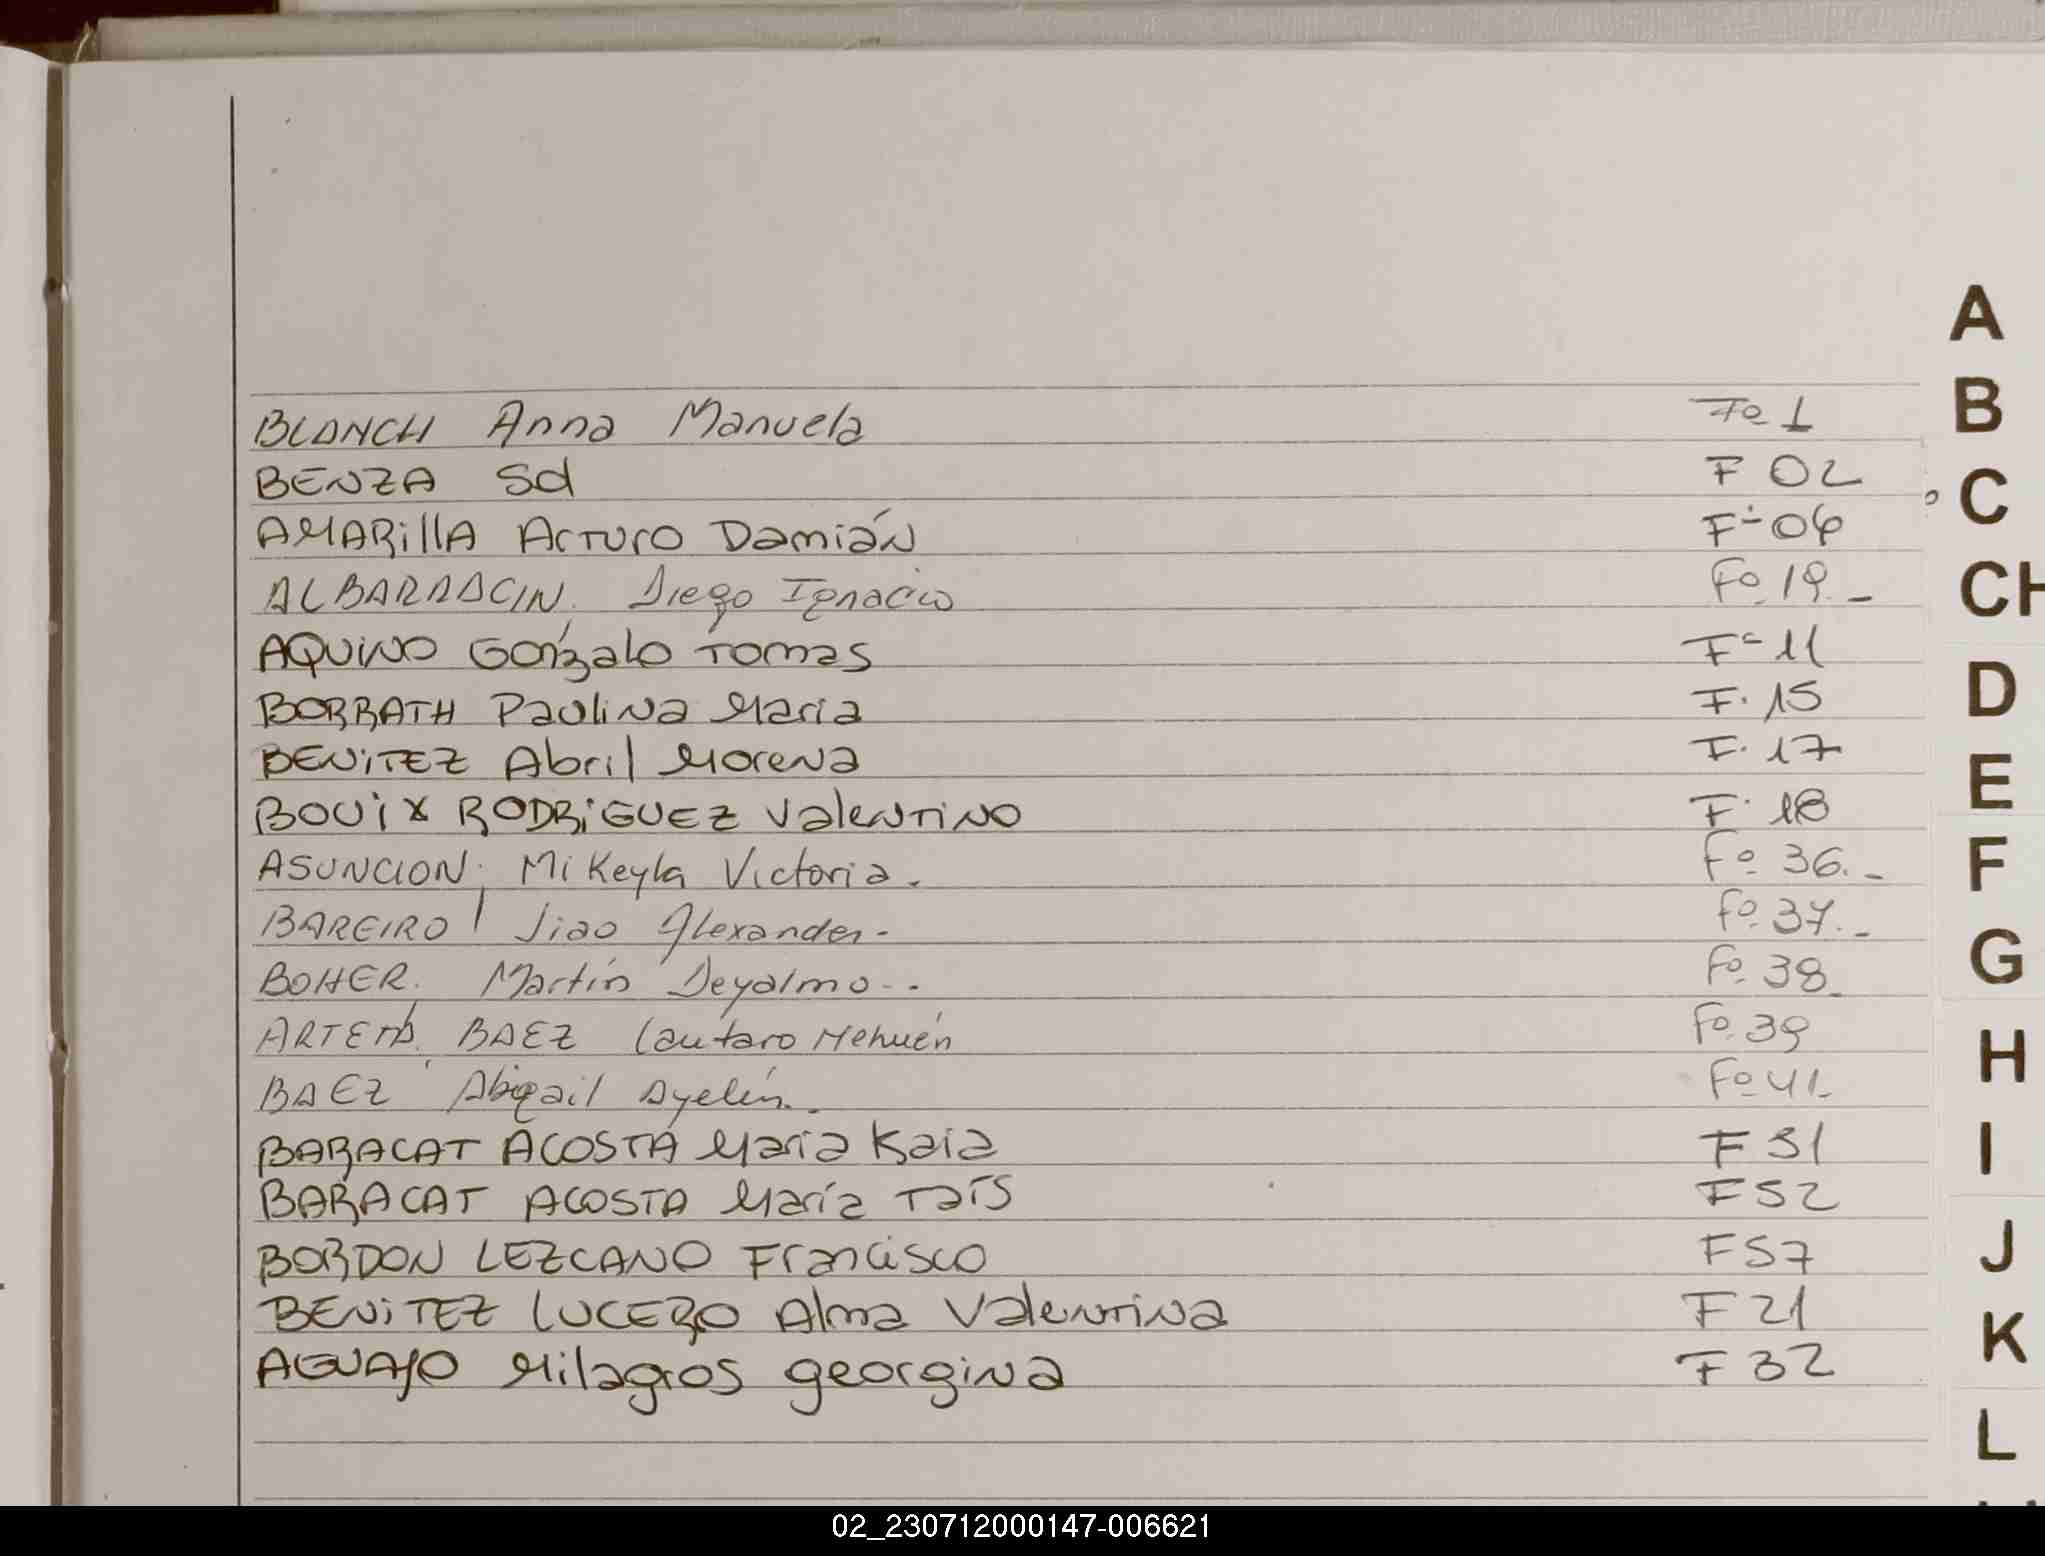 A
B
C
CH
D
E
F
G
H
I
J
K
L
BLANCH Anna Manuela Fo 1
BENZA Sol F 02
AMARillA Arturo Damián Fº 06
ALBARRACIN. Diego Ignacio Fo. 19.-
AQUINO Gonzalo Tomás Fº 11
BORRATH Paulina Maria F. 15
BENITEZ Abril Morena F. 17
BOUIX RODRIGUEZ Valentino F. 18
ASUNCION. Mikeyla Victoria. Fº 36.-
BAREIRO Jiao Alexander.- Fº 37.-
BOHER. Martín Deyalmo.. Fº 38.
ARTETA. BAEZ Lautaro Nehuén Fº 39
BAEZ Abigail Ayelén. Fº 41-
BARACAT ACOSTA Maria Kaia F 31
BARACAT ACOSTA María Taís F 52
BORDON LEZCANO Francisco F 57
BENITEZ LUCERO Alma Valentina F 21
AGUAYO Milagros georgina F 32
02_230712000147-006621